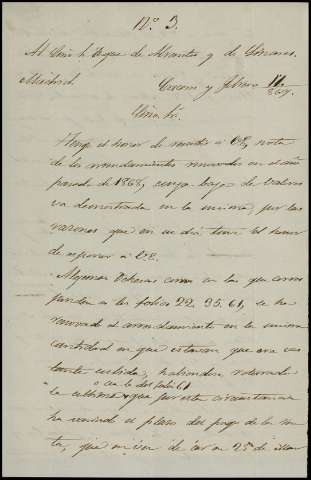 Nº 3.
Al Exmo Sr Duque de Abrantes y de Linares.
Madrid.
Cáceres y Febrero 11
869.
Exmo Sr.
Tengo el honor de remitir a V.E. nota
de los arrendamientos renovados en el año
pasado de 1868, cuya baja de valores
va demostrada en la misma, por las
razones que en su dia tuve el honor
de esponer a V.E.
Algunas Dehesas como en las que corres
ponden a los folios 22. 35. 61, se ha
renovado el arrendamiento en la misma
cantidad en que estavan que era bas
tante subida; habiendose retirado
o sea la del folio 61
la ultima que por esta circunstancia
ha venido el plazo del pago de la ren
ta, que en vez de ser a 25 de